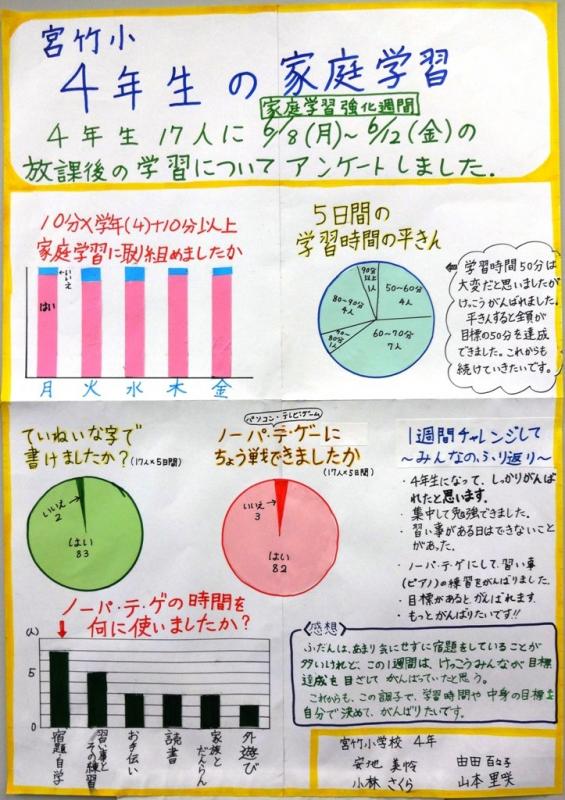 宮竹小
4年生の家庭学習
家庭学習強化週間
4年生17人に6/8(月)~6/12(金)の
放課後の学習についてアンケートしました.
10分×学年(4)+10分以上
家庭学習に取り組めましたか
いいえ
はい
月 火 水 木 金
5日間の
学習時間の平きん
90分以上
1人
50~60分
4人
80~90分
4人
60~70分
7人
70~80分
1人
学習時間50分は
大変だと思いましたが
けっこうがんばれました。
平きんすると全員が
目標の50分を達成
できました。これからも
続けていきたいです。
ていねいな字で
書けましたか?(17人×5日間)
いいえ
2
はい
83
パソコン・テレビ・ゲーム
ノーパ・テ・ゲーに
ちょう戦できましたか
(17人×5日間)
いいえ
3
はい
82
1週間チャレンジして
~みんなのふり返り~
・4年生になって、しっかりがんば
れたと思います。
・集中して勉強できました。
・習い事がある日はできないこと
があった。
・ノーパ・テ・ゲにして、習い事
(ピアノ)の練習をがんばりました。
・目標があると、がんばれます。
・もっとがんばりたいです!!
ノーパ・テ・ゲの時間を
何に使いましたか?
(人)
5
0
宿題・自学
習い事と
その練習
お手伝い
読書
家族と
だんらん
外遊び
〈感想〉
ふだんは、あまり気にせずに宿題をしていることが
多いけれど、この1週間は、けっこうみんなが目標
達成を目ざしてがんばっていたと思う。
これからも、この調子で、学習時間や中身の目標を
自分で決めて、がんばりたいです。
宮竹小学校 4年
安地 美怜 由田 百々子
小林 さくら 山本 里咲